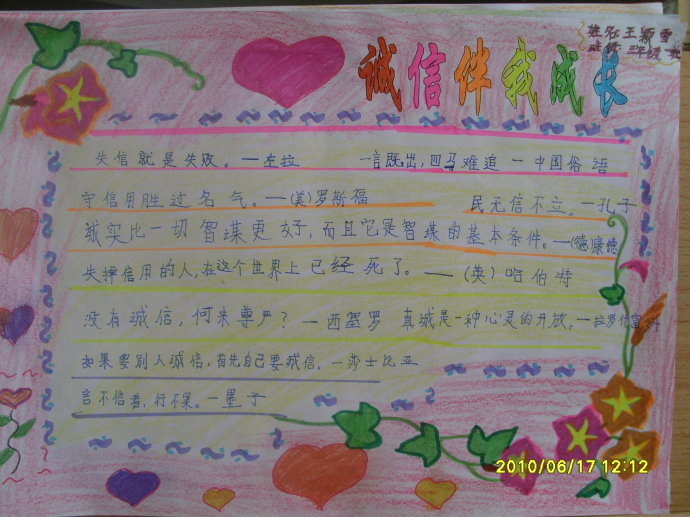 诚信伴我成长
王颖雪
三年级一班
失信就是失败。—左拉 一言既出，四马难追 —中国俗语
守信用胜过名气。—(美)罗斯福 民无信不立。—孔子
诚实比一切智谋更好，而且它是智谋的基本条件。—(德)康德
失掉信用的人，在这个世界上已经死了。—(英)哈伯特
没有诚信，何来尊严？—西塞罗 真诚是一种心灵的开放。—拉罗什富科
如果要别人诚信，首先自己要诚信。—莎士比亚
言不信者，行不果。—墨子
2010/06/17 12:12